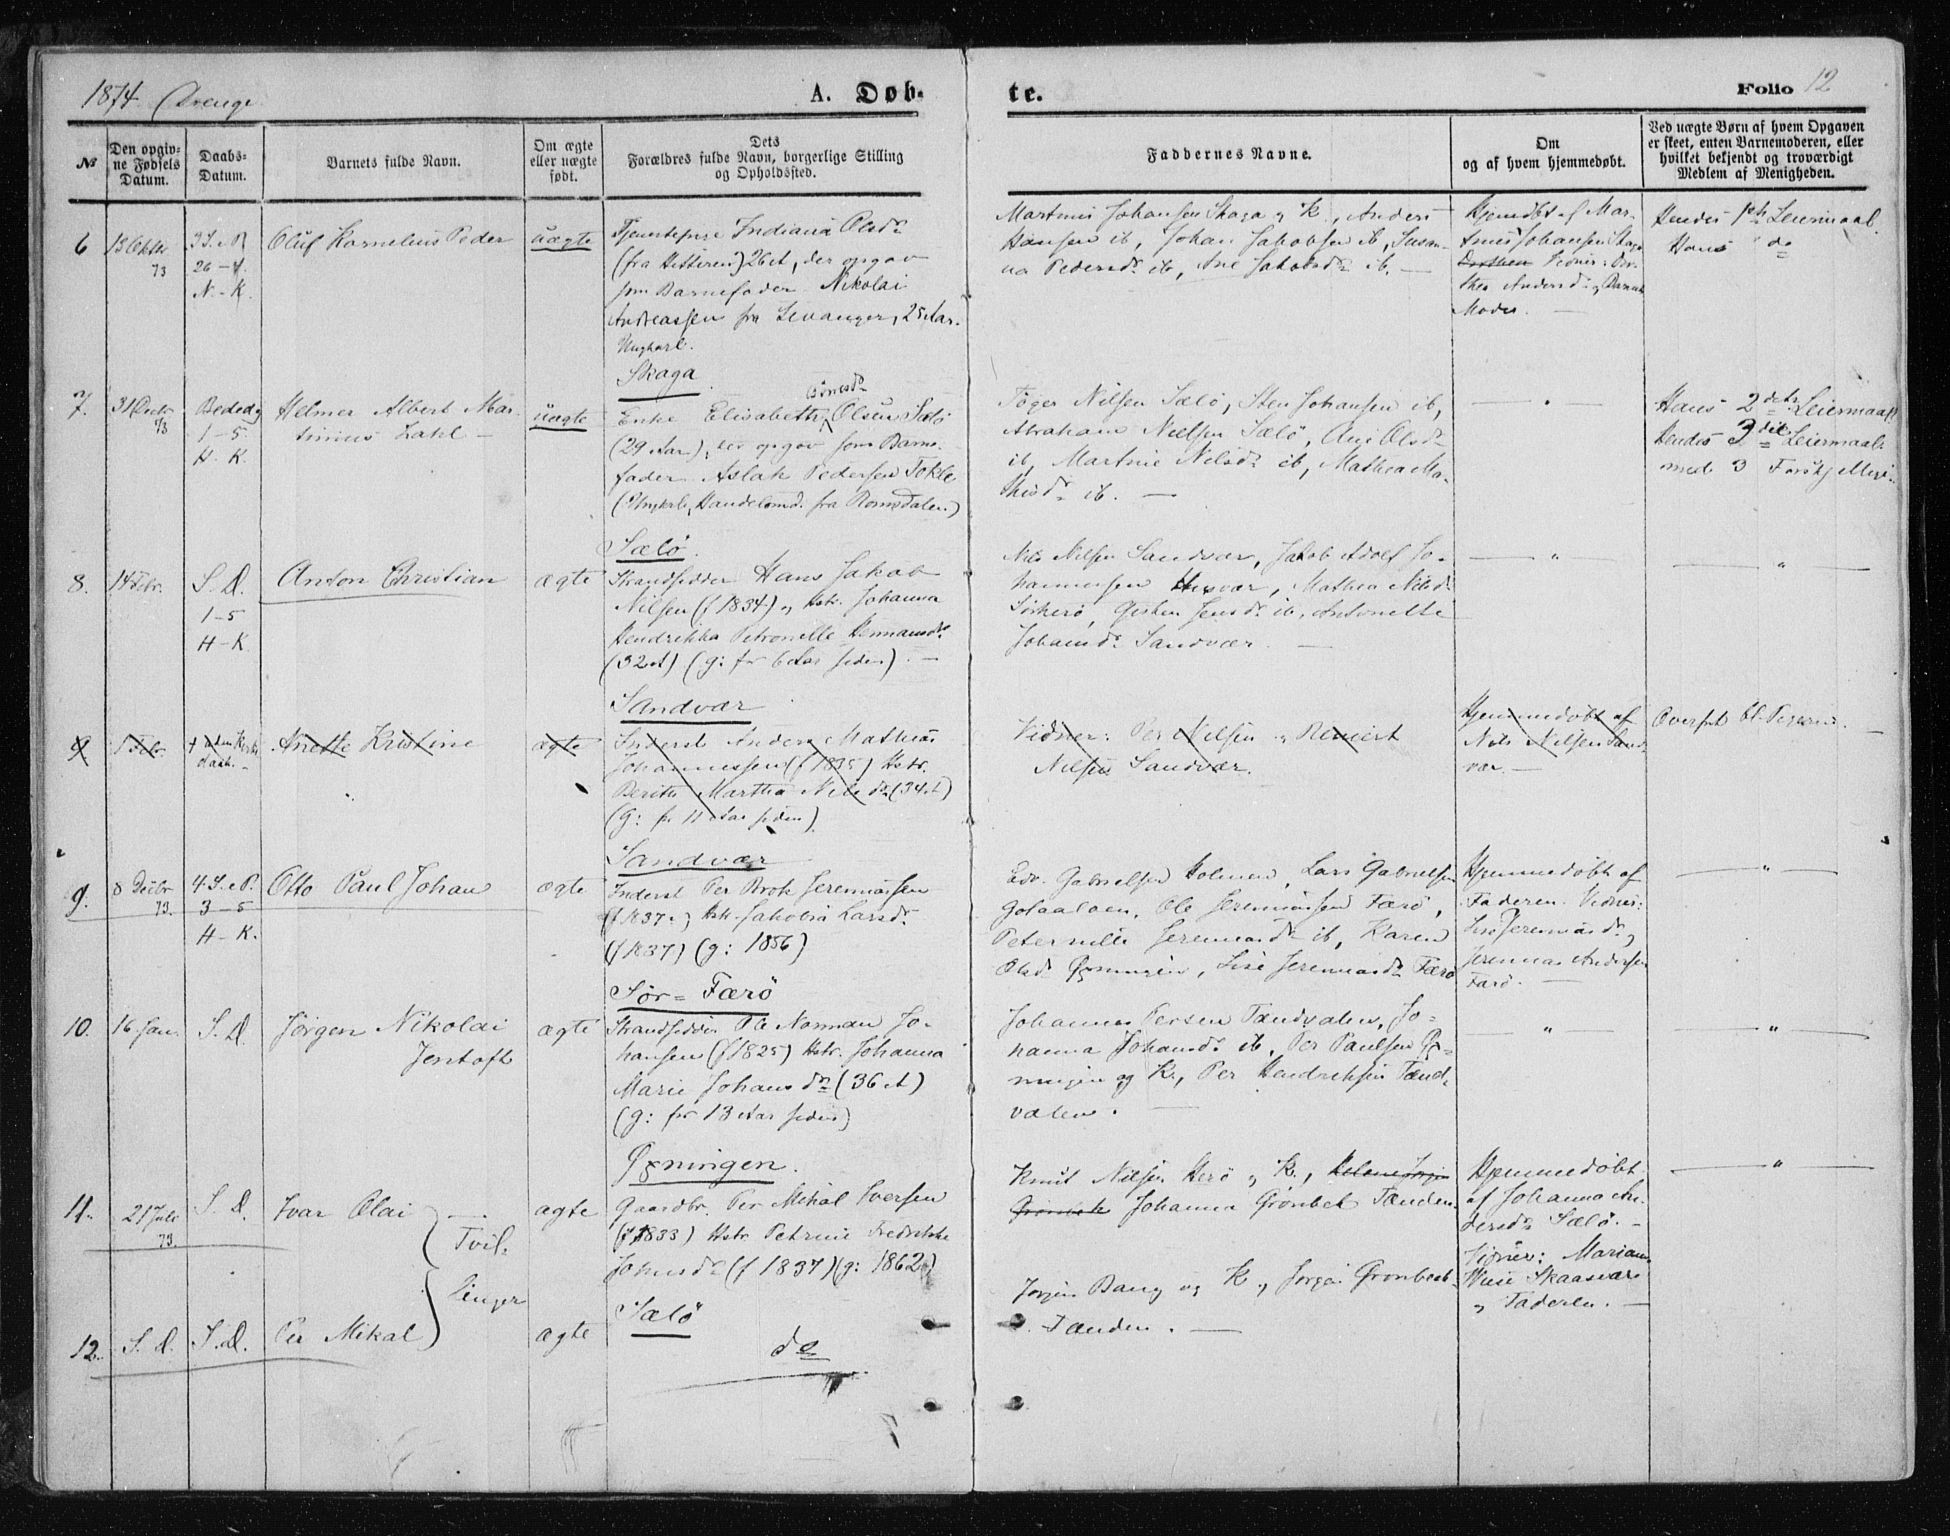 1874. Drenge
A. Døb-
te.
Folio 12
No
Den opgiv-
ne Fødsels
Datum.
Daabs-
Datum.
Barnets fulde Navn.
Om ægte
eller uægte
født.
Dets
Forældres fulde Navn, borgerlige Stilling
og Opholdssted.
Faddernes Navne.
Om
og af hvem hjemmedøbt.
Ved uægte Børn af hvem Opgaven
er skeet, enten Barnemoderen, eller
hvilket bekjendt og troværdigt
Medlem af Menigheden.
6
13 Oktbr
73
3 S. e P.
26-4.
N.-K.
Oluf Kornelius Peder
uægte
Tjenestepige Indiana Olsdr
(fra Hitteren) 26 A, der opgav
som Barnefader Nikolai
Andreassen fra Levanger, 25 Aar.
Ungkarl.
Skaga
Martinus Johansen Skaga og K., Anders
Hansen ib, Johan Jakobsen ib, Susan-
na Pedersdr ib, Ane Jakobsdr ib. —
Hjemdbt af Mar-
tinus Johansen Skaga
Dorthea Vidner: Dor-
thea Andersdr og Barnets
Moder. —
Hendes 1ste Leiermaal.
Hans do
7.
31 Decbr
73
Bededag
1-5.
H. K.
Helmer Albert Mar-
tinius Zahl —
uægte
Enke Elisabeth Børresdr Olsen Sælø
(29 Aar), der opgav som Barne-
fader Aslak Pedersen Tokle
(Ungkarl, Handelsmd. fra Romsdalen)
Sælø.
Tøger Nilsen Sælø, Sten Johansen ib,
Abraham Nielsen Sælø, Ane Olsdr
ib, Martine Nilsdr ib, Mathea Ma-
thisdr ib. —
— " —
Hans 2det Leiermaal.
Hendes 3die Leiermaal
med 3 Forskjellige.
8.
14 Febr.
S. D.
1-5
H-K
Anton Christian
ægte
Strandsidder Hans Jakob
Nilsen (f 1834) og Hstr. Johanna
Hendrikka Petronelle Hermansdr
(32 A) (g: for 6 Aar siden). —
Sandvær
Nils Nilsen Sandvær, Jakob Adolf Jo-
hannessen Husvær, Mathea Nilsdr
Sørherø, Gjertru Jensdr ib, Antonette
Johansdr Sandvær. —
— " —
— " —
9.
1 Febr.
Anette Kristine
ægte
Inderst Anders Mathias
Johannessen (f 1835) Hstr.
Berith Martha Nilsdr (34 A)
(g: for 11 Aar siden).
Sandvær
Vidner: Per Nilsen og Reinert
Nilsen Sandvær.
Hjemmedøbt af
Nils Nilsen Sand-
vær. —
Overført bl. Pigerne. —
9.
8 Decbr
73.
4. S. e P.
3-5
H-K.
Otto Paul Johan
ægte
Inderst Per Brok Jeremiassen
(f 1837 og Hstr Jakobia Larsdr.
(f 1837) (g: 1856)
Sør-Færø
Edv. Gabrielsen Holmen, Lars Gabrielsen
Golaalven, Ole Jeremiassen Færø,
Peternille Jeremiasdr ib, Karen
Olsdr Øxningen, Lise Jeremiasdr Færø
Hjemmedøbt af
Faderen. Vidner:
Lise Jeremiasdr og
Jeremias Andersen
Færø. —
— " —
10.
16 Jan.
S. D.
Jørgen Nikolai
Jentoft
ægte
Strandsidder Ole Norman Jo-
hansen (f 1825) Hstr. Johanna
Marie Johansdr (36 A)
(g: for 13 Aar siden)
Øxningen.
Johannes Persen Tændvalen, Jo-
hanna Johansdr ib, Per Paulsen Øx-
ningen og K., Per Hendriksen Tænd-
valen. —
— " —
— " —
11.
21 Juli
73.
S. D.
Ivar Olai
Tvil-
linger
ægte
Gaardbr. Per Mikal Iversen
(f 1833) Hstr Petrine Fredrikke
Johnsdr (f 1837) (g: 1862)
Sælø
Knut Nilsen Herø og K.,
Johanna Grønbek Tænden.
Hjemmedøbt
af Johanna An-
dersdr Sælø. —
Vidner: Mariane
Wiese Skaasvær
og Faderen. —
— " —
12.
S. D.
S. D.
Per Mikal
ægte
do
Jørgen Bang og K., Jørgen Grønbech
Tænden. —